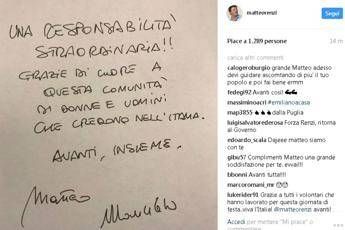 UNA RESPONSABILITÀ
STRAORDINARIA!!
GRAZIE DI CUORE A
QUESTA COMUNITÀ
DI DONNE E UOMINI
CHE CREDONO NELL'ITALIA.
AVANTI, INSIEME.
Matteo
matteorenzi
Segui
Piace a 1.289 persone
14 m
carica altri commenti
calogeroburgio grande Matteo adesso
devi guidare ascomtando di piu' il tuo
popolo e poi fai bene ermm
fedegi92 Avanti così!
massimoacri #emilianoacasa
map3855 dalla Puglia
luigisalvatorederosa Forza Renzi, ritorna
al Governo
edoardo_scala Dajeee matteo siamo
con te
gibu57 Complimenti Matteo una grande
soddisfazione per te. evvai!!!
bbonni Avanti tutta!!!
marcoromani_mr
lukerider91 Grazie a tutti i volontari che
hanno lavorato per questa giornata di
festa, viva l'Italia! @matteorenzi avanti!
Accedi per mettere "Mi piace" o
commentare.